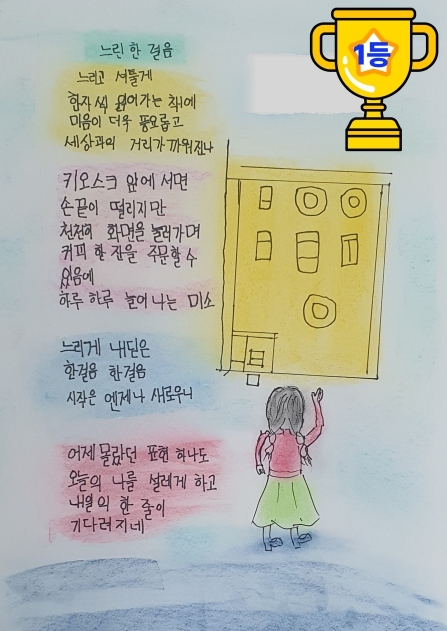 1등
느린 한 걸음
느리고 서툴게
한자씩 읽어가는 책에
마음이 더욱 풍요롭고
세상과의 거리가 까워진다
키오스크 앞에 서면
손끝이 떨리지만
천천히 화면을 눌러가며
커피 한 잔을 주문할 수
있음에
하루 하루 늘어 나는 미소
느리게 내딛은
한걸음 한걸음
시작은 엔제나 새로우니
어제 몰랐던 표현 하나도
오늘의 나를 설레게 하고
내일의 한 줄이
기다려지네